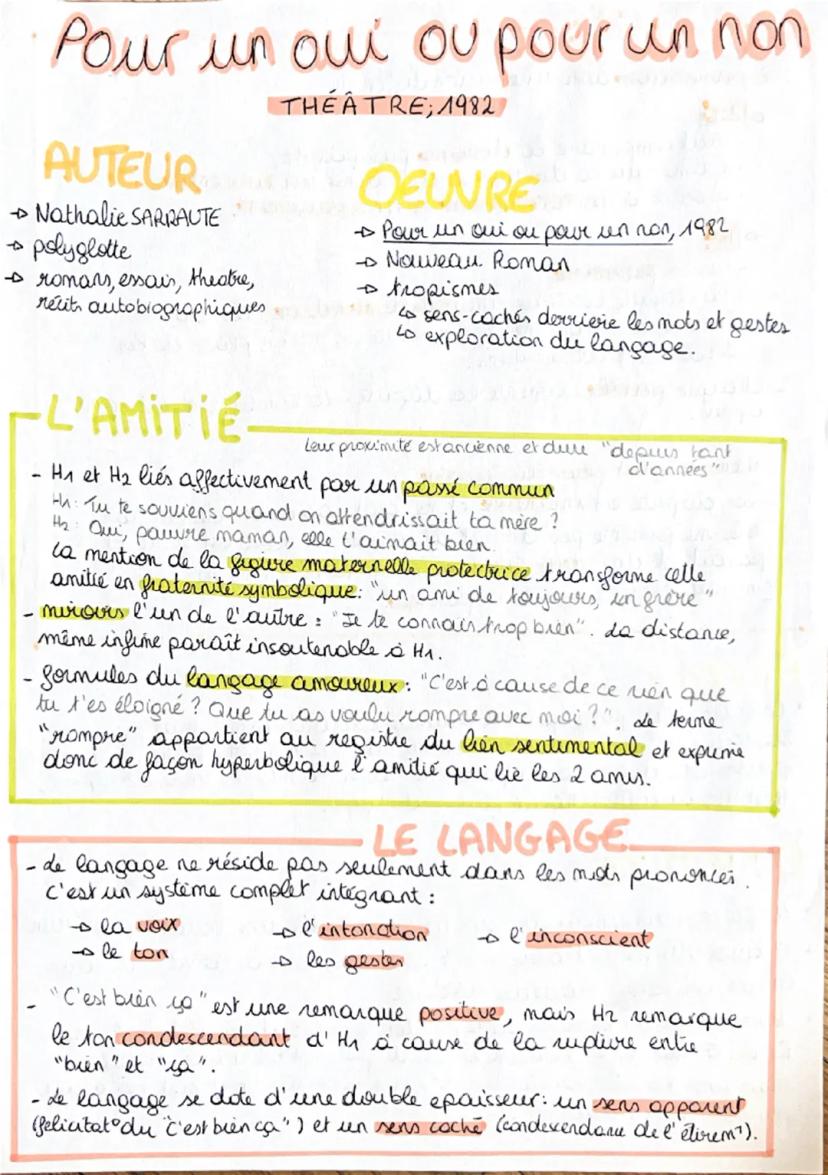 Pour un oui ou pour un non
THÉÂTRE; 1982
AUTEUR
→ Nathalie SARRAUTE
→ polyglotte
→ romans, essais, theatre,
récits autobiographiques
OEUVRE
→ Pour un oui ou pour un non, 1982
→ Nouveau Roman
→ tropismes
↳ sens-cachés derriere les mots et gestes
↳ exploration du langage.
L'AMITIÉ
Leur proximité est ancienne et dure "depuis tant
d'années"
- H1 et H2 liés affectivement par un passé commun
H1: Tu te souviens quand on attendrissait ta mère ?
H2: Oui, pauvre maman, elle t'aimait bien
La mention de la figure maternelle protectrice transforme cette
amitié en fraternité symbolique: "un ami de toujours, un frère"
- miroirs l'un de l'autre : "Je te connais trop bien". La distance,
même infime paraît insoutenable à H1.
- formules du langage amoureux : "C'est à cause de ce rien que
tu t'es éloigné ? Que tu as voulu rompre avec moi ?". Le terme
"rompre" appartient au registre du lien sentimental et exprime
donc de façon hyperbolique l'amitié qui lie les 2 amis.
LE LANGAGE
- Le langage ne réside pas seulement dans les mots prononcés.
C'est un système complet intégrant :
→ la voix → l'intonation → l'inconscient
→ le ton → les gestes
- "C'est bien ça" est une remarque positive, mais H2 remarque
le ton condescendant d'H1 à cause de la rupture entre
"bien" et "ça".
- Le langage se dote d'une double epaisseur: un sens apparent
(felicitat° du "c'est bien ça") et un sens caché (condescendane de l'étirem^t).